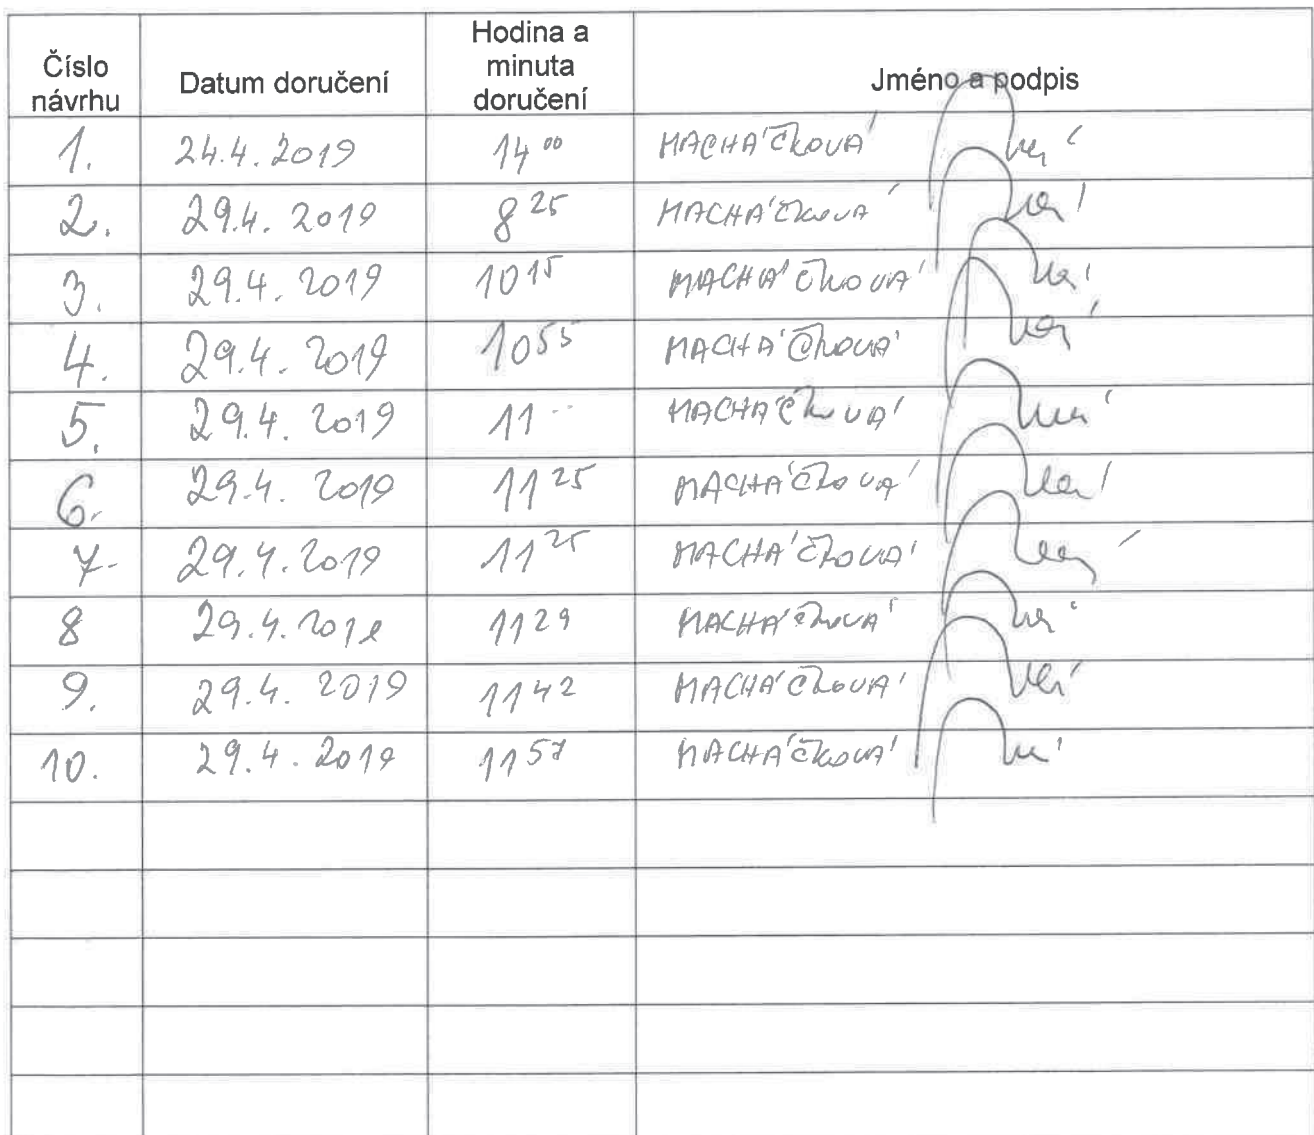 Číslo návrhu Datum doručení Hodina a minuta doručení Jméno a podpis
1. 24.4.2019 14 00 MACHÁČKOVÁ
2. 29.4. 2019 8 25 MACHÁČKOVÁ
3. 29.4. 2019 10 15 MACHÁČKOVÁ
4. 29.4. 2019 10 55 MACHÁČKOVÁ
5. 29.4. 2019 11 MACHÁČKOVÁ
6. 29.4. 2019 11 25 MACHÁČKOVÁ
7. 29.4.2019 11 25 MACHÁČKOVÁ
8 29.4.2019 11 29 MACHÁČKOVÁ
9. 29.4. 2019 11 42 MACHÁČKOVÁ
10. 29.4. 2019 11 57 MACHÁČKOVÁ